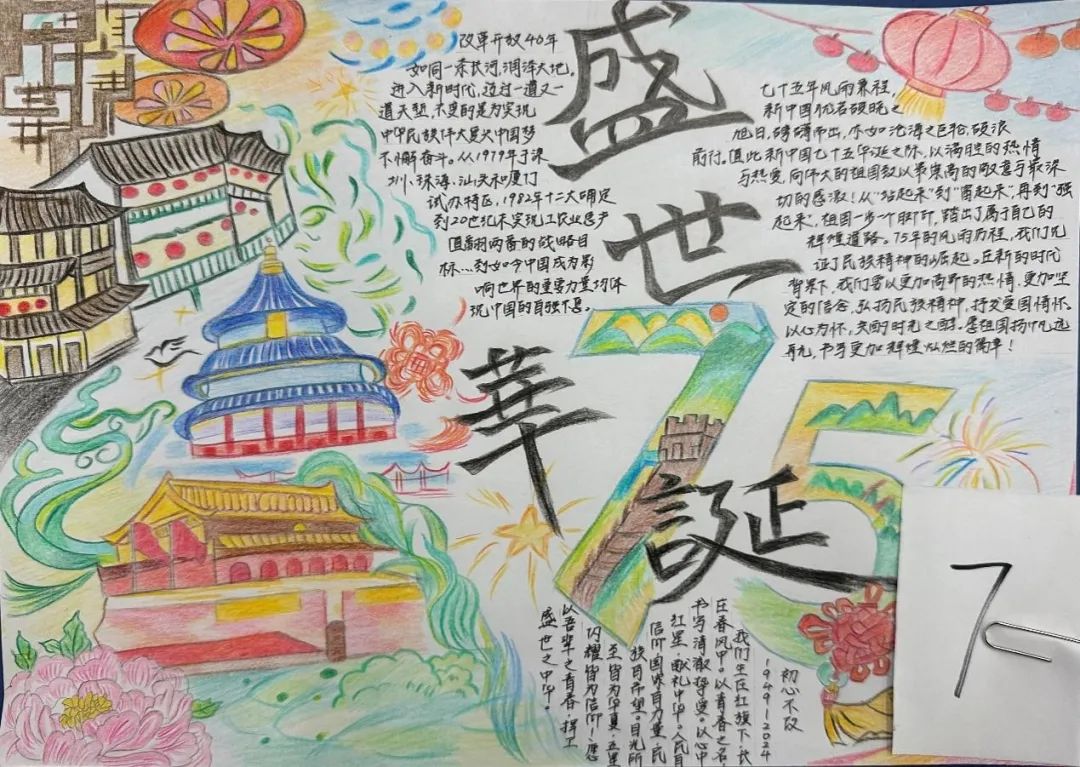 盛世華誕
75
改革开放40年
如同一条长河,润泽大地。
进入新时代,迈过一道又一
道天堑,不变的是为实现
中华民族伟大复兴中国梦
不懈奋斗。从1979年于深
圳、珠海、汕头和厦门
试办特区,1982年十二大确定
到20世纪末实现工农业总产
值翻两番的战略目
标...到如今中国成为影
响世界的重要力量均体
现中国的自强不息。
七十五年风雨兼程,
新中国仿若破晓之
旭日,磅礴而出,亦如沧海之巨轮,破浪
前行。值此新中国七十五华诞之际,以满腔的热情
与热爱,向伟大的祖国致以最崇高的敬意与最深
切的感激!从“站起来”到“富起来”,再到“强
起来”,祖国一步一个脚印,踏出了属于自己的
辉煌道路。75年的风雨历程,我们见
证了民族精神的崛起。在新的时代
背景下,我们要以更加高昂的热情、更加坚
定的信念,弘扬民族精神,抒发爱国情怀。
以心为怀,共酌时光之酬。愿祖国扬帆远
航,书写更加辉煌灿烂的篇章!
初心不改
1949-2024
我们生在红旗下,长
在春风中。以青春之名,
书写清澈挚爱。以心中
红星,献礼中华。人民有
信仰国家有力量,民
族有希望。目光所
至皆为华夏,五星
闪耀皆为信仰!愿
以吾辈之青春,捍卫
盛世之中华。
7